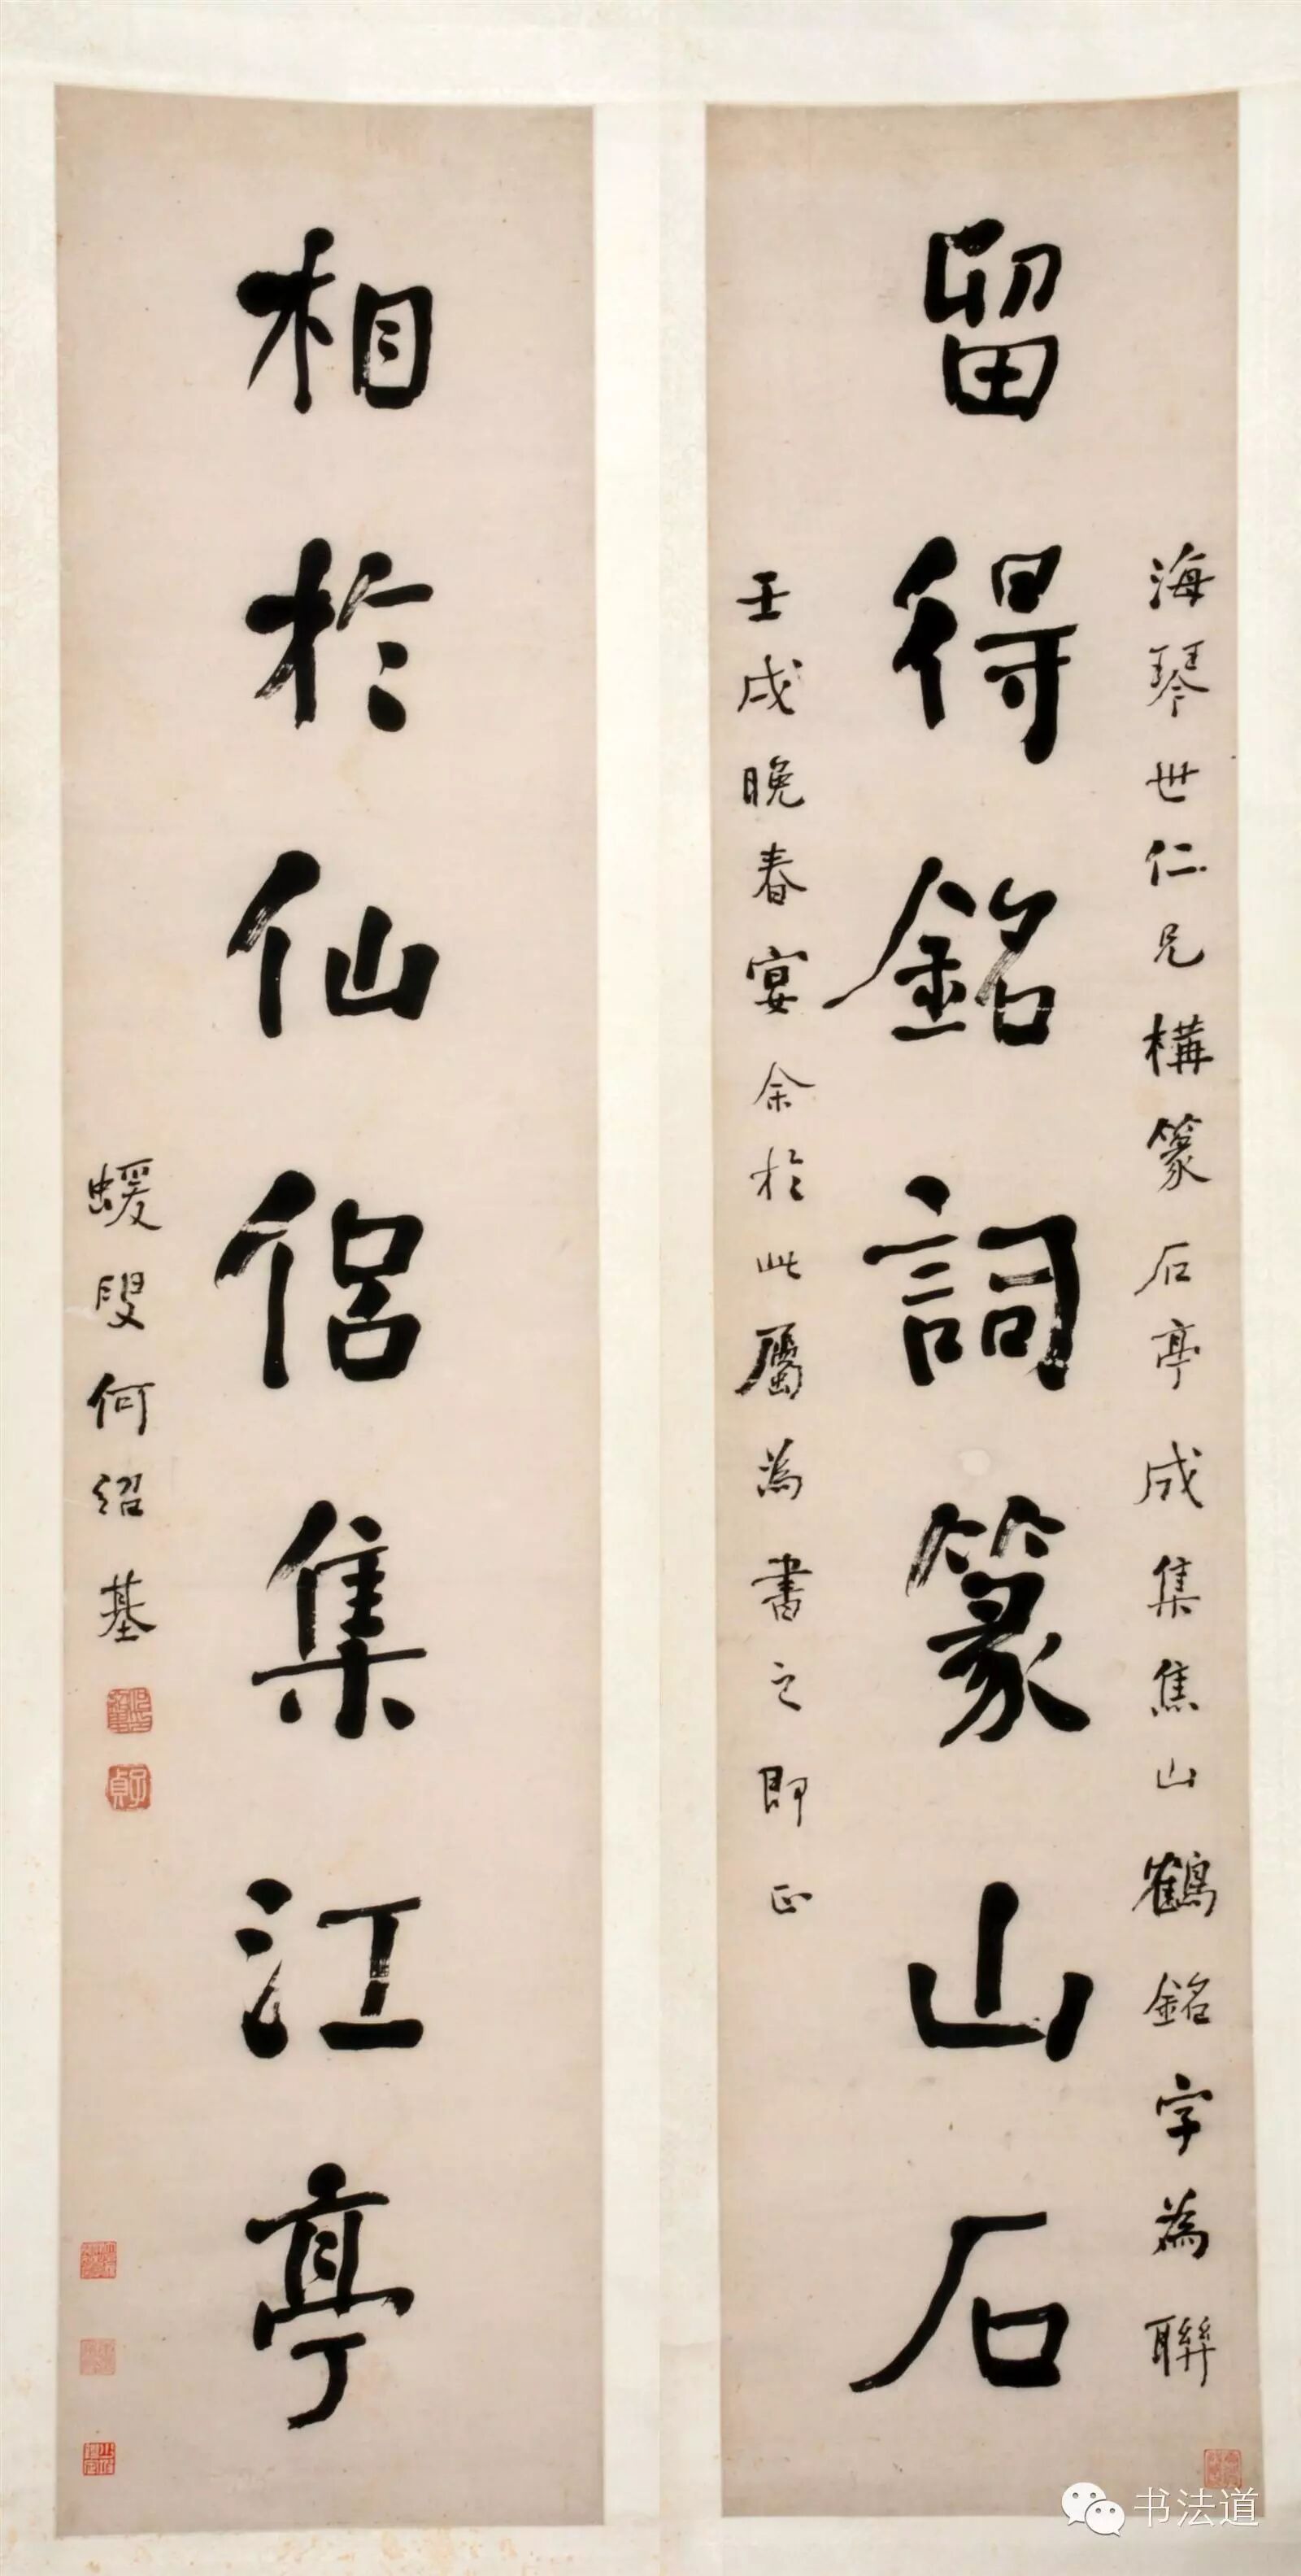 海琴世仁兄構篆石亭成集焦山鶴銘字為聯
留得銘詞篆山石
壬戌晚春宴余於此屬為書之即正
相於仙侶集江亭
蝯叟何紹基
子貞
书法道